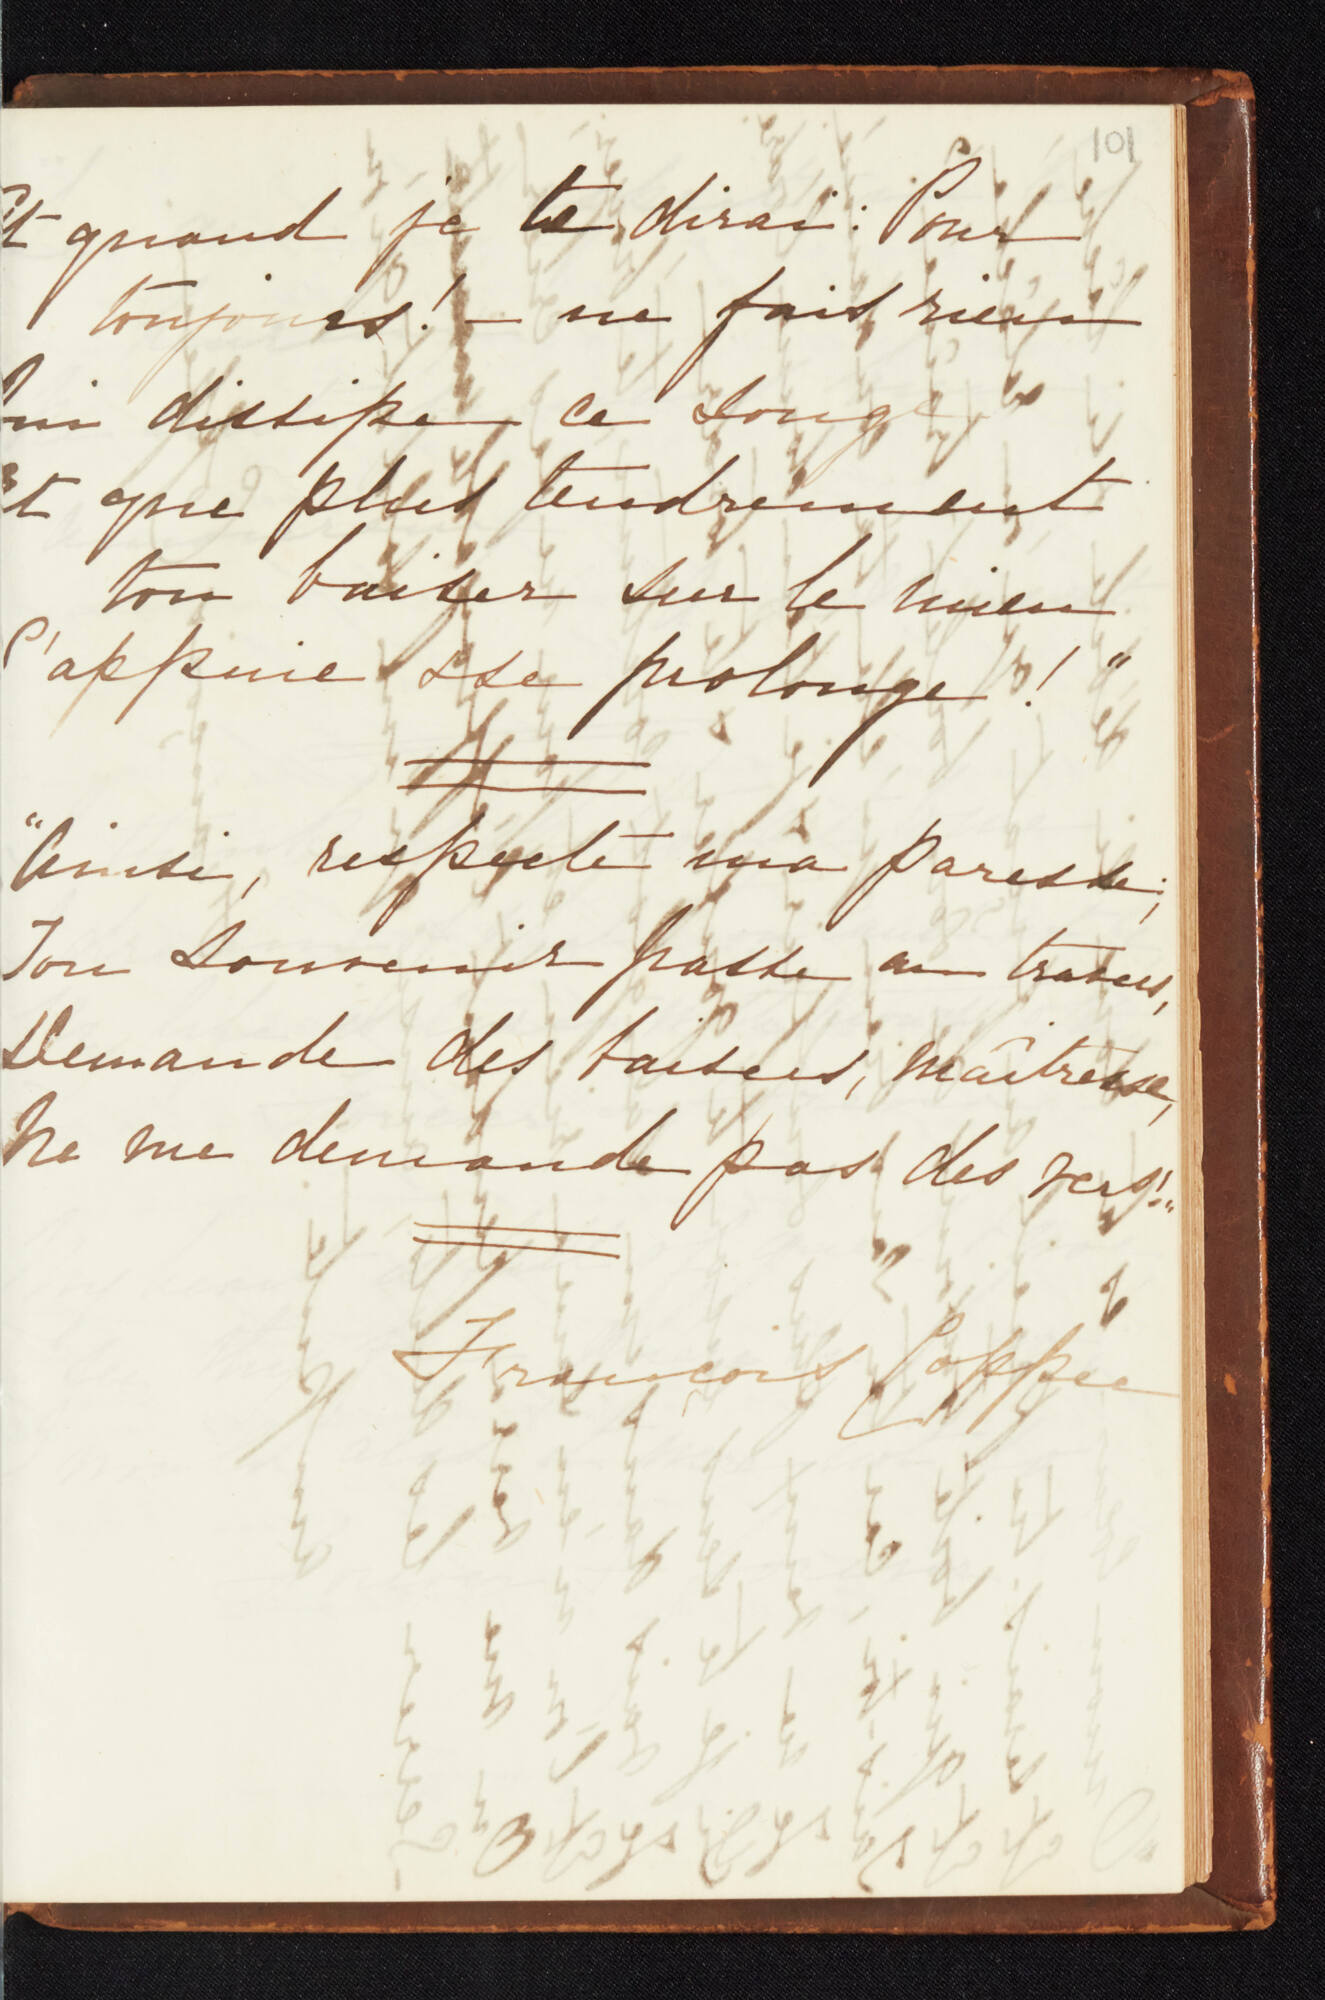 101
Et quand je te dirai: Pour
toujours! – ne fais rien
Qui dissipe ce songe
Et que plus tendrement
ton baiser sur le mien
S'appuie & se prolonge! "
"Ainsi, respecte ma paresse;
Ton souvenir passe au travers,
Demande des baisers, maîtresse,
Ne me demande pas des vers!"
François Coppee